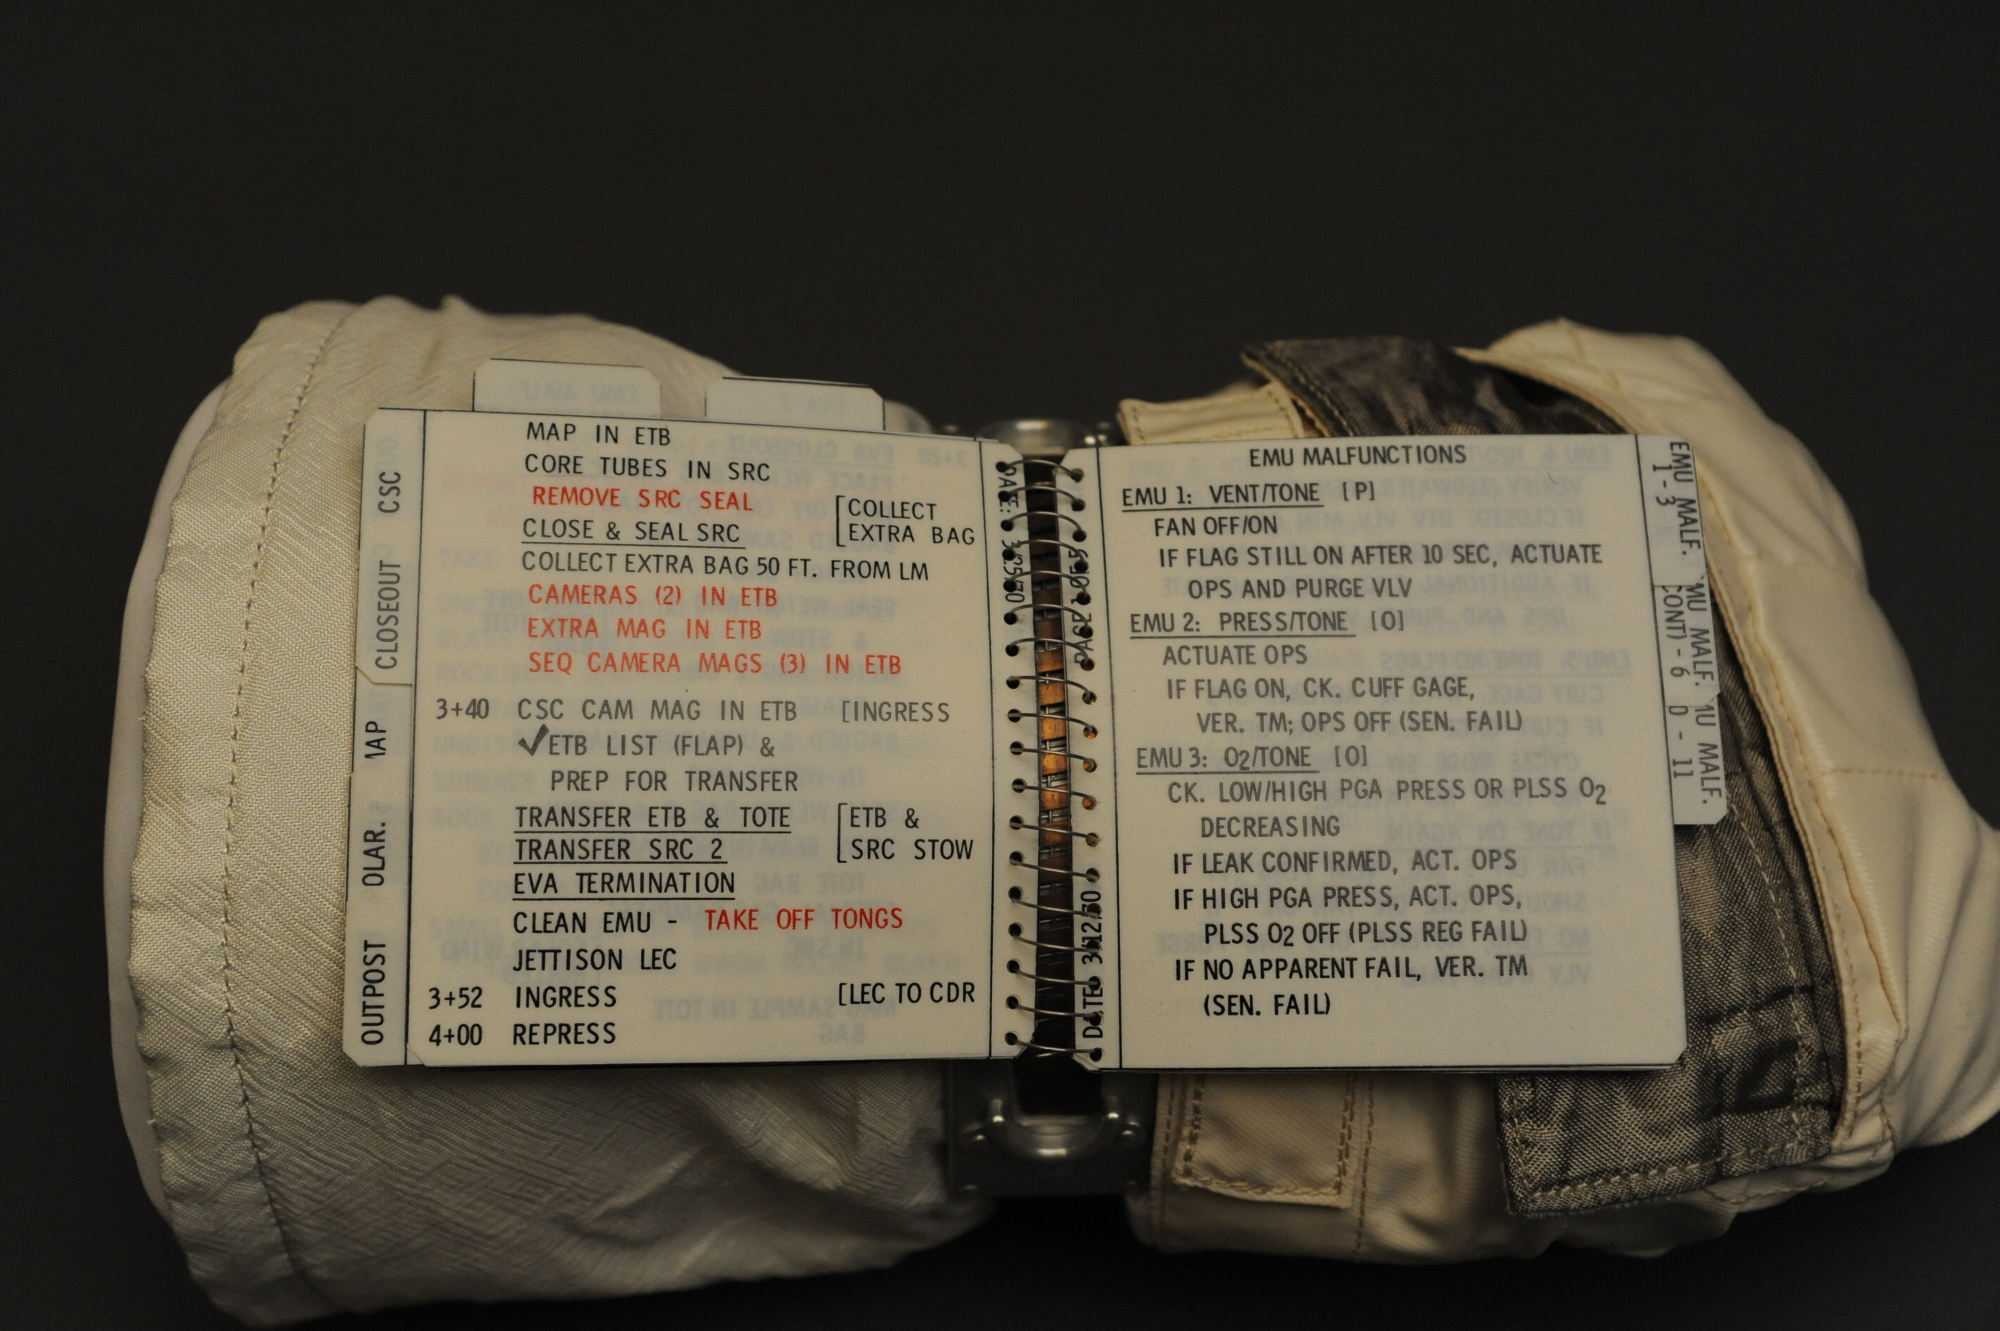 MAP IN ETB
CORE TUBES IN SRC
REMOVE SRC SEAL [COLLECT
CLOSE & SEAL SRC EXTRA BAG
COLLECT EXTRA BAG 50 FT. FROM LM
CAMERAS (2) IN ETB
EXTRA MAG IN ETB
SEQ CAMERA MAGS (3) IN ETB
3+40 CSC CAM MAG IN ETB [INGRESS
✓ETB LIST (FLAP) &
PREP FOR TRANSFER
TRANSFER ETB & TOTE [ETB &
TRANSFER SRC 2 SRC STOW
EVA TERMINATION
CLEAN EMU - TAKE OFF TONGS
JETTISON LEC
3+52 INGRESS [LEC TO CDR
4+00 REPRESS
CSC
CLOSEOUT
MAP
OLAR.
OUTPOST
DATE: 3/25/70
EMU MALFUNCTIONS
EMU 1: VENT/TONE [P]
FAN OFF/ON
IF FLAG STILL ON AFTER 10 SEC, ACTUATE
OPS AND PURGE VLV
EMU 2: PRESS/TONE [O]
ACTUATE OPS
IF FLAG ON, CK. CUFF GAGE,
VER. TM; OPS OFF (SEN. FAIL)
EMU 3: O2/TONE [O]
CK. LOW/HIGH PGA PRESS OR PLSS O2
DECREASING
IF LEAK CONFIRMED, ACT. OPS
IF HIGH PGA PRESS, ACT. OPS,
PLSS O2 OFF (PLSS REG FAIL)
IF NO APPARENT FAIL, VER. TM
(SEN. FAIL)
EMU MALF.
1-3
MU MALF.
CONT) - 6
MU MALF.
D - 11